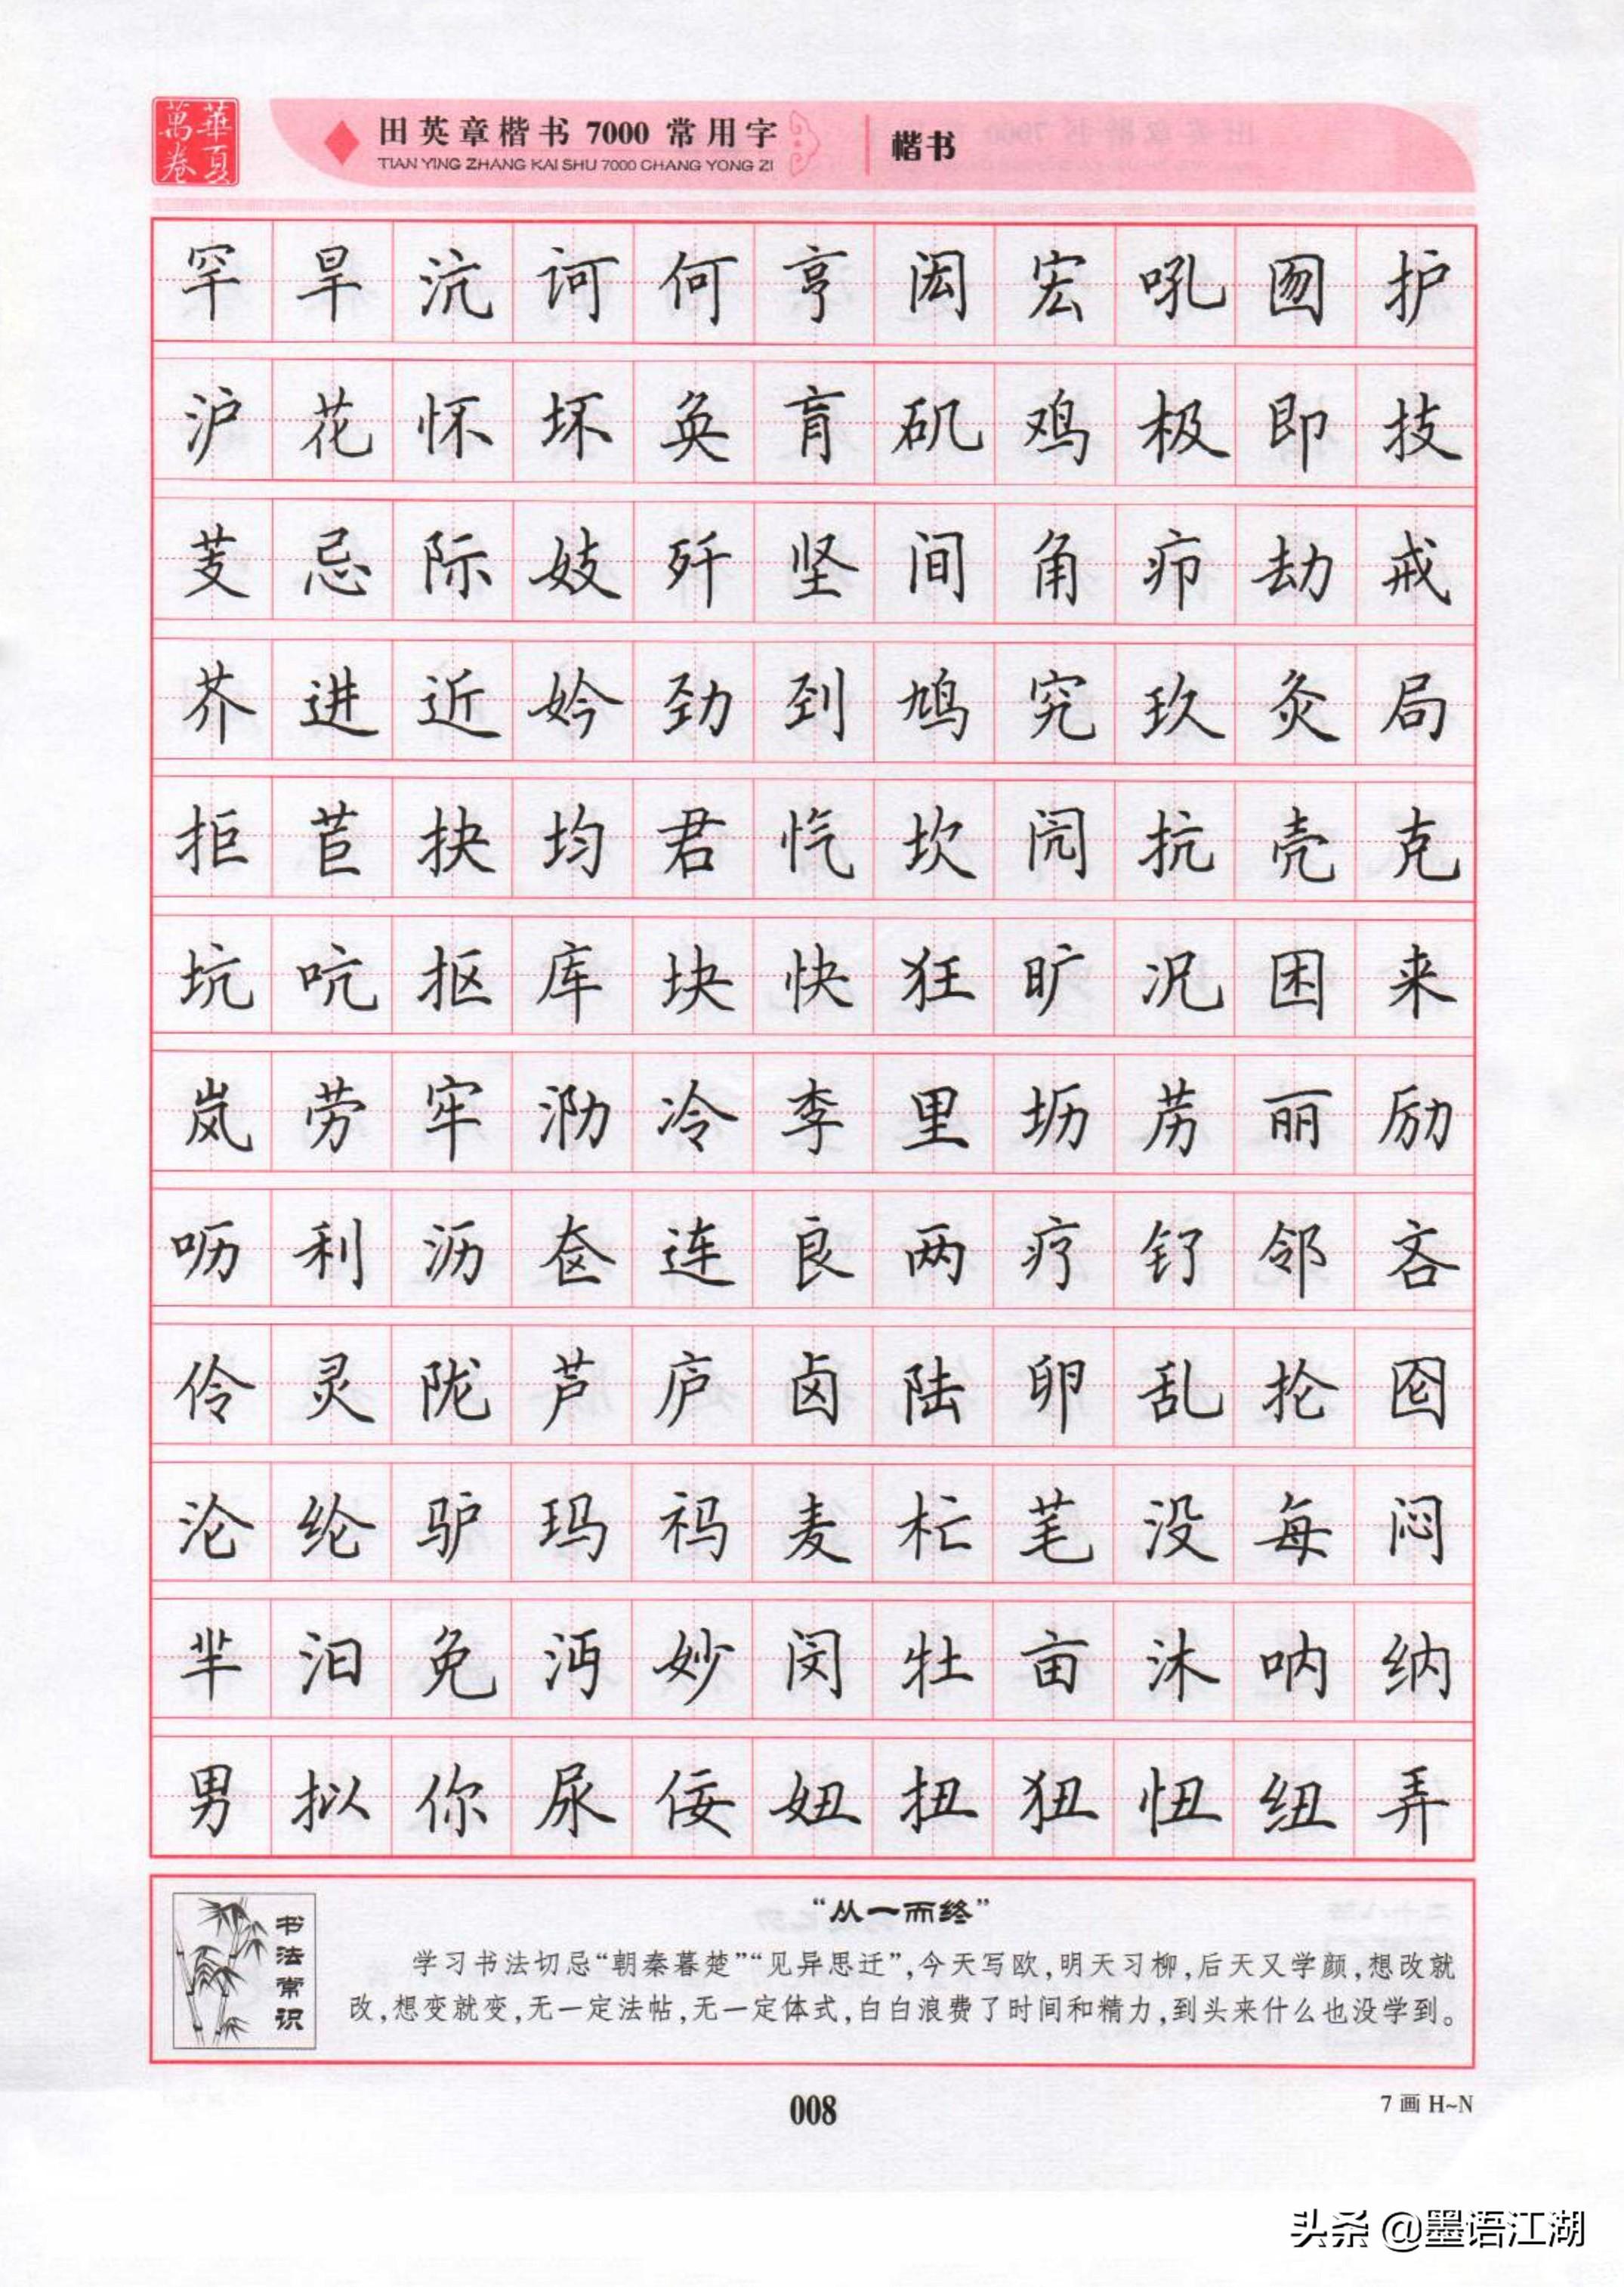 華夏萬卷
田英章楷书 7000 常用字
TIAN YING ZHANG KAI SHU 7000 CHANG YONG ZI
楷书
罕旱沆诃何亨闳宏吼囫护
沪花怀坏奂肓矶鸡极即技
芰忌际妓歼坚间角疖劫戒
芥进近妗劲刭鸠究玖灸局
拒苣抉均君忾坎闶抗壳克
坑吭抠库块快狂旷况困来
岚劳牢泐冷李里坜苈丽励
呖利沥奁连良两疗钌邻吝
伶灵陇芦庐卤陆卵乱抡囵
沦纶驴玛祃麦杧芼没每闷
芈汨免沔妙闵牡亩沐呐纳
男拟你尿佞妞扭狃忸纽弄
书法常识
“从一而终”
学习书法切忌“朝秦暮楚”“见异思迁”,今天写欧,明天习柳,后天又学颜,想改就
改,想变就变,无一定法帖,无一定体式,白白浪费了时间和精力,到头来什么也没学到。
008
7 画 H~N
头条 @墨语江湖